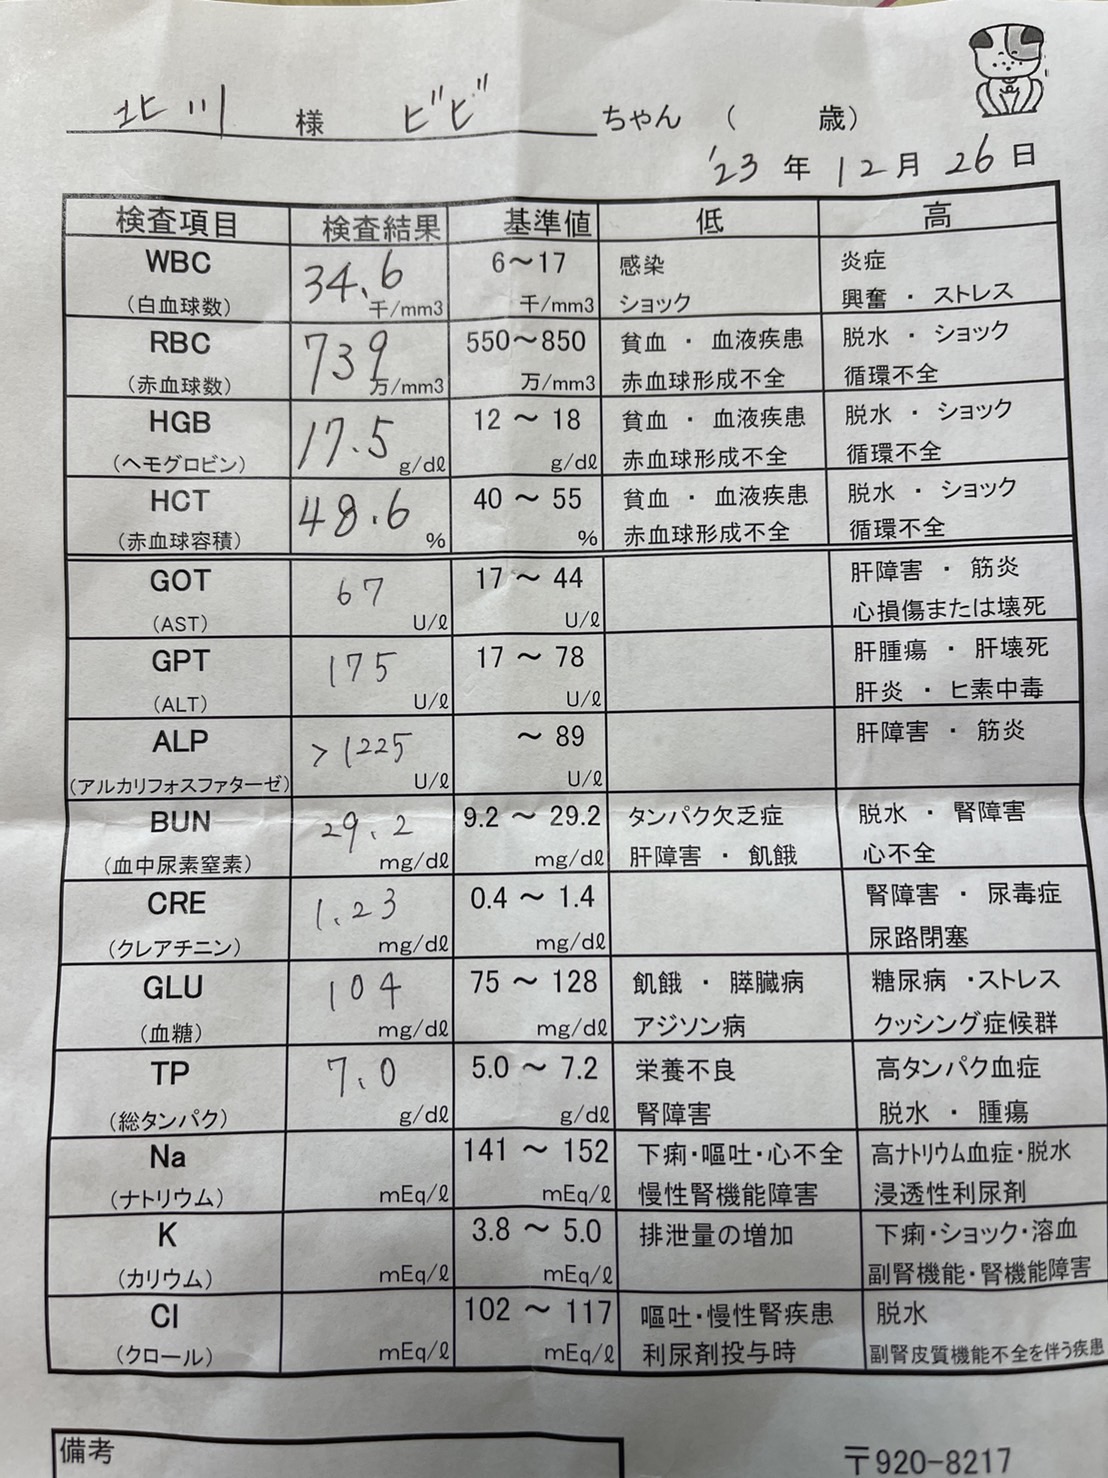 北川 様 ビビ ちゃん ( 歳)
'23 年 12 月 26 日
検査項目 検査結果 基準値 低 高
WBC 34.6 6～17 感染 炎症
(白血球数) 千/mm3 千/mm3 ショック 興奮 ・ ストレス
RBC 739 550～850 貧血 ・ 血液疾患 脱水 ・ ショック
(赤血球数) 万/mm3 万/mm3 赤血球形成不全 循環不全
HGB 17.5 12 ～ 18 貧血 ・ 血液疾患 脱水 ・ ショック
(ヘモグロビン) g/dℓ g/dℓ 赤血球形成不全 循環不全
HCT 48.6 40 ～ 55 貧血 ・ 血液疾患 脱水 ・ ショック
(赤血球容積) % % 赤血球形成不全 循環不全
GOT 67 17 ～ 44 肝障害 ・ 筋炎
(AST) U/ℓ U/ℓ 心損傷または壊死
GPT 175 17 ～ 78 肝腫瘍 ・ 肝壊死
(ALT) U/ℓ U/ℓ 肝炎 ・ ヒ素中毒
ALP >1225 ～ 89 肝障害 ・ 筋炎
(アルカリフォスファターゼ) U/ℓ U/ℓ
BUN 29.2 9.2 ～ 29.2 タンパク欠乏症 脱水 ・ 腎障害
(血中尿素窒素) mg/dℓ mg/dℓ 肝障害 ・ 飢餓 心不全
CRE 1.23 0.4 ～ 1.4 腎障害 ・ 尿毒症
(クレアチニン) mg/dℓ mg/dℓ 尿路閉塞
GLU 104 75 ～ 128 飢餓 ・ 膵臓病 糖尿病 ・ストレス
(血糖) mg/dℓ mg/dℓ アジソン病 クッシング症候群
TP 7.0 5.0 ～ 7.2 栄養不良 高タンパク血症
(総タンパク) g/dℓ g/dℓ 腎障害 脱水 ・ 腫瘍
Na 141 ～ 152 下痢・嘔吐・心不全 高ナトリウム血症・脱水
(ナトリウム) mEq/ℓ mEq/ℓ 慢性腎機能障害 浸透性利尿剤
K 3.8 ～ 5.0 排泄量の増加 下痢・ショック・溶血
(カリウム) mEq/ℓ mEq/ℓ 副腎機能・腎機能障害
Cl 102 ～ 117 嘔吐・慢性腎疾患 脱水
(クロール) mEq/ℓ mEq/ℓ 利尿剤投与時 副腎皮質機能不全を伴う疾患
備考
〒920-8217